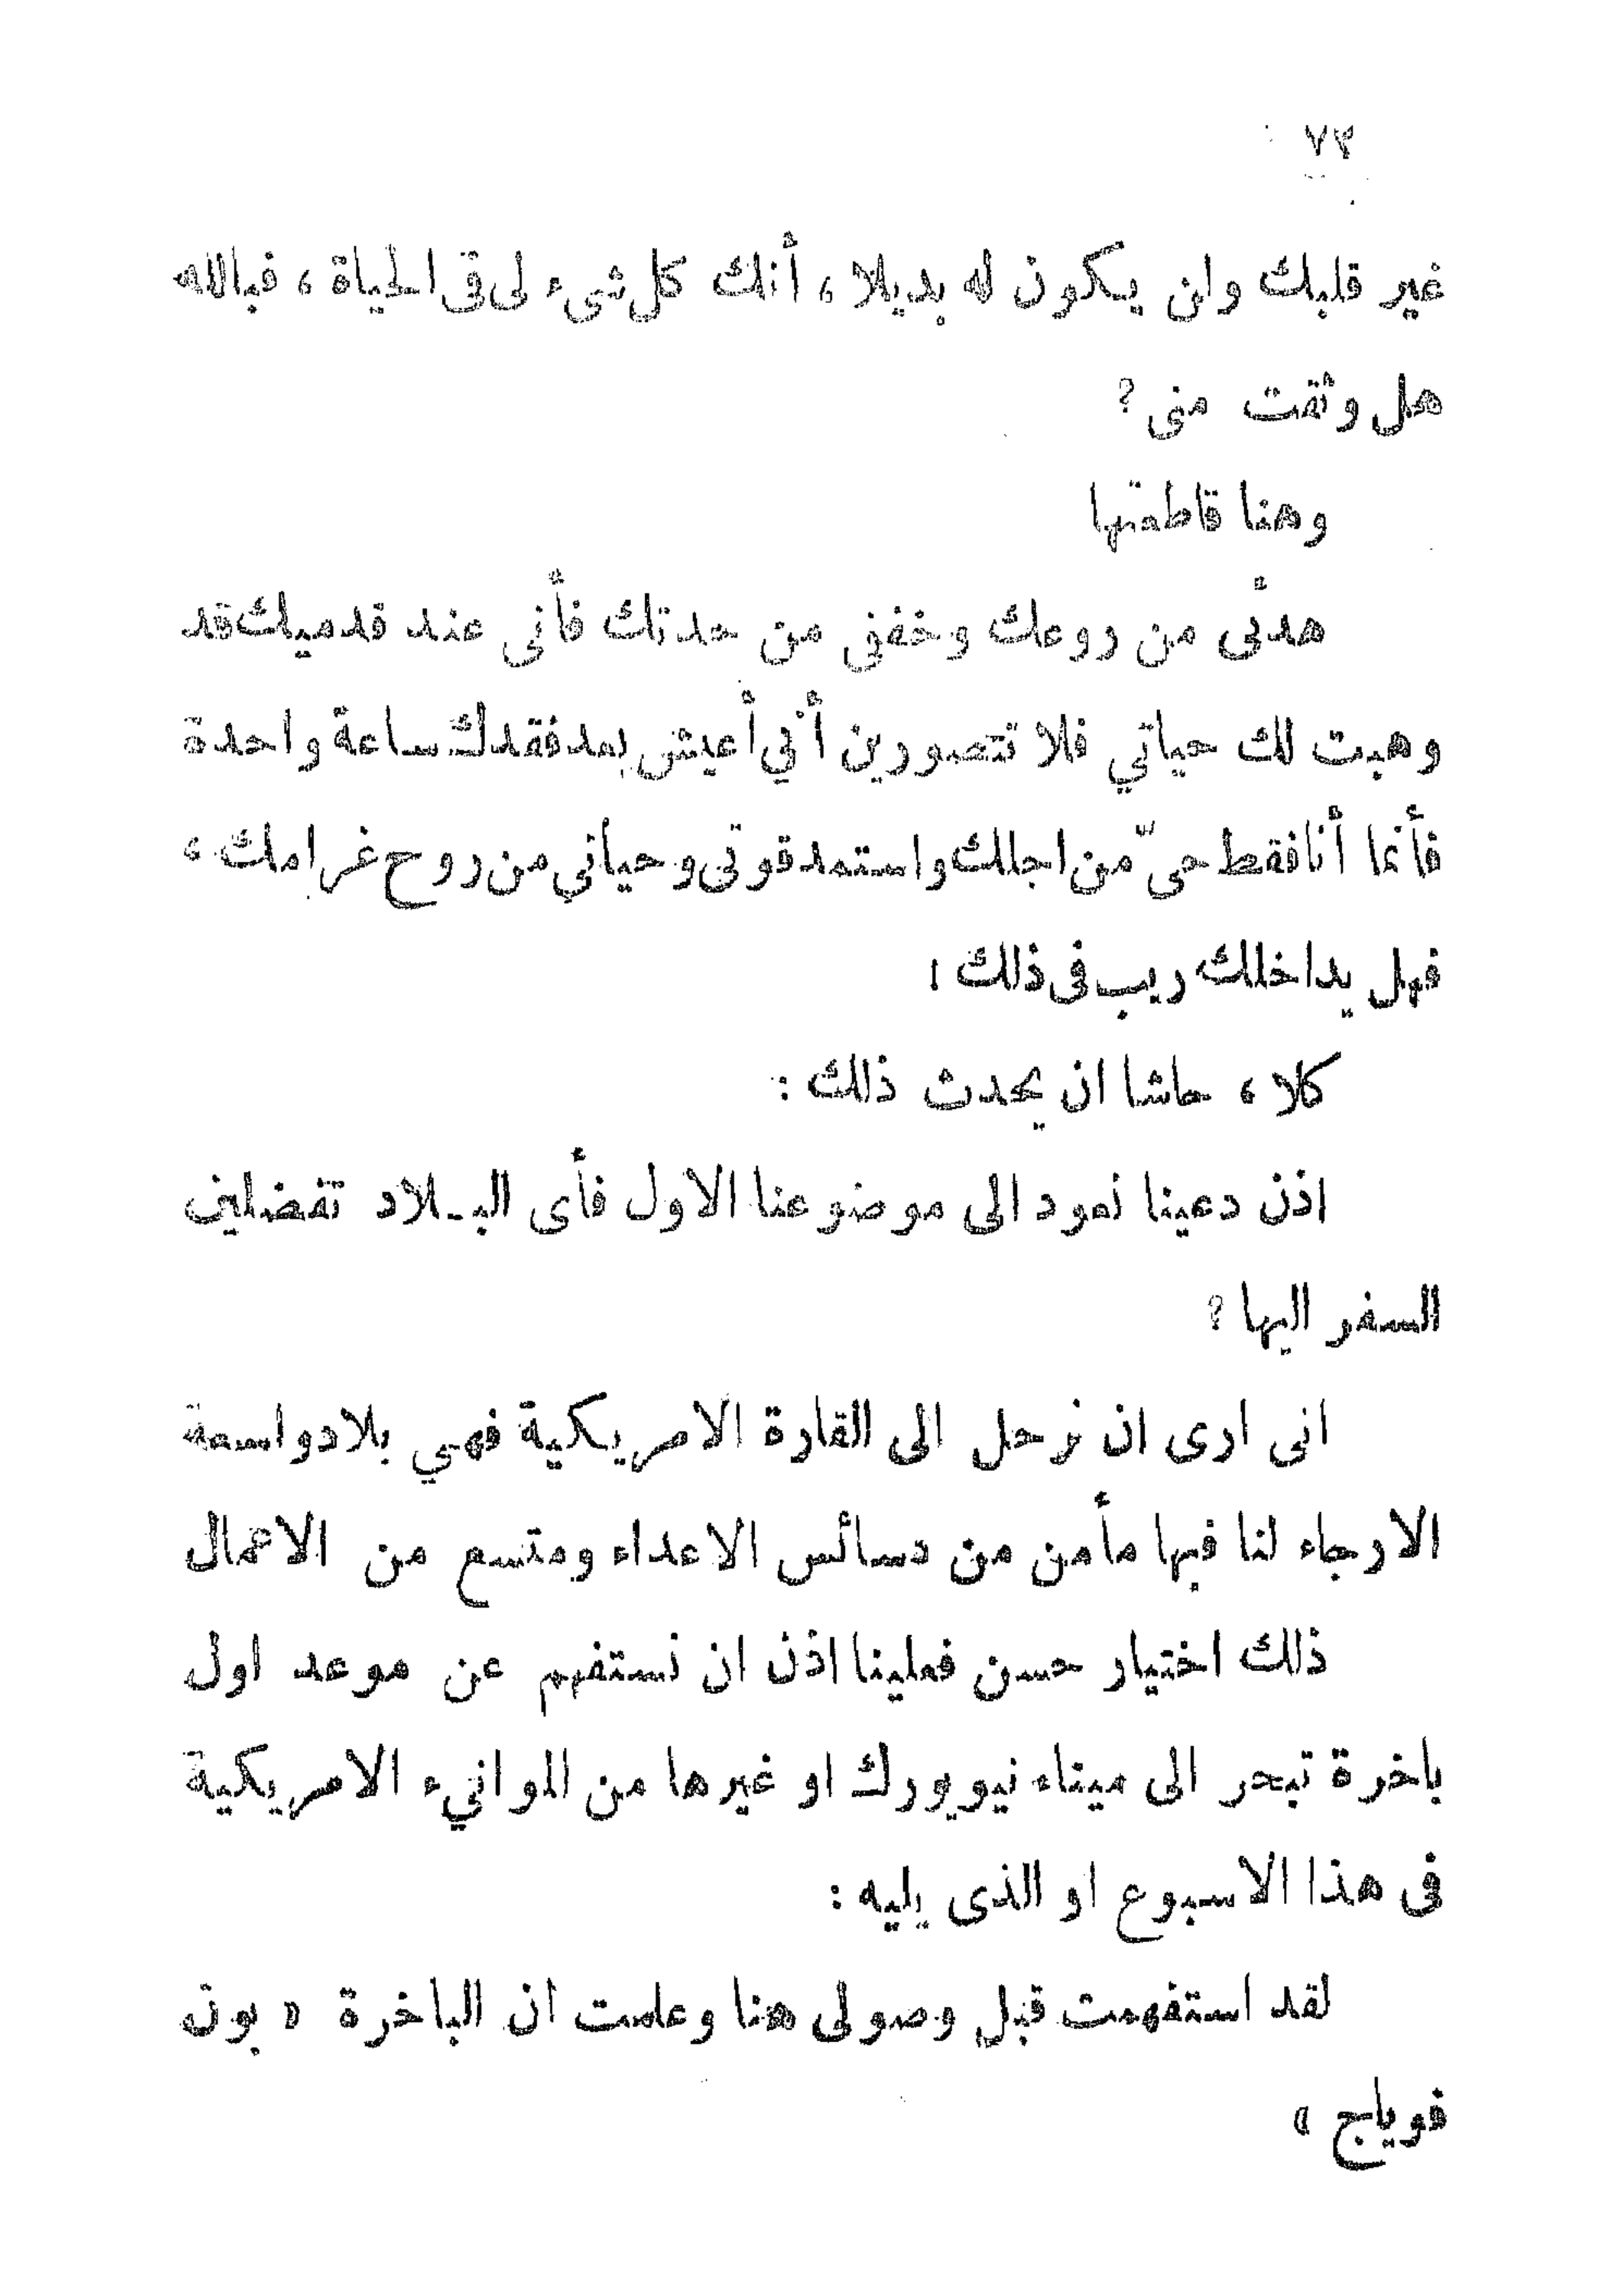 ٧٣
غير قلبك ولن يكون له بديلا ، أنك كل شىء لى فى الحياة ، فبالله
هل وثقت منى ؟
وهنا قاطعتها
هدئى من روعك وخففى من حدتك فأنى عند قدميك قد
وهبت لك حياتي فلا تتصورين أني أعيش بعد فقدك ساعة واحدة
فأنما أنا فقط حىّ من اجلك واستمد قوتى وحياتي من روح غرامك ،
فهل يداخلك ريب فى ذلك !
كلا ، حاشا ان يحدث ذلك :
اذن دعينا نعود الى موضوعنا الاول فأى البـلاد تفضلين
السفر اليها ؟
انى ارى ان نرحل الى القارة الامريكية فهي بلاد واسعة
الارجاء لنا فيها مأمن من دسائس الاعداء ومتسع من الاعمال
ذلك اختيار حسن فعلينا اذن ان نستفهم عن موعد اول
باخرة تبحر الى ميناء نيويورك او غيرها من الموانيء الامريكية
فى هذا الاسبوع او الذى يليه :
لقد استفهمت قبل وصولى هنا وعلمت ان الباخرة « بون
فوياج »